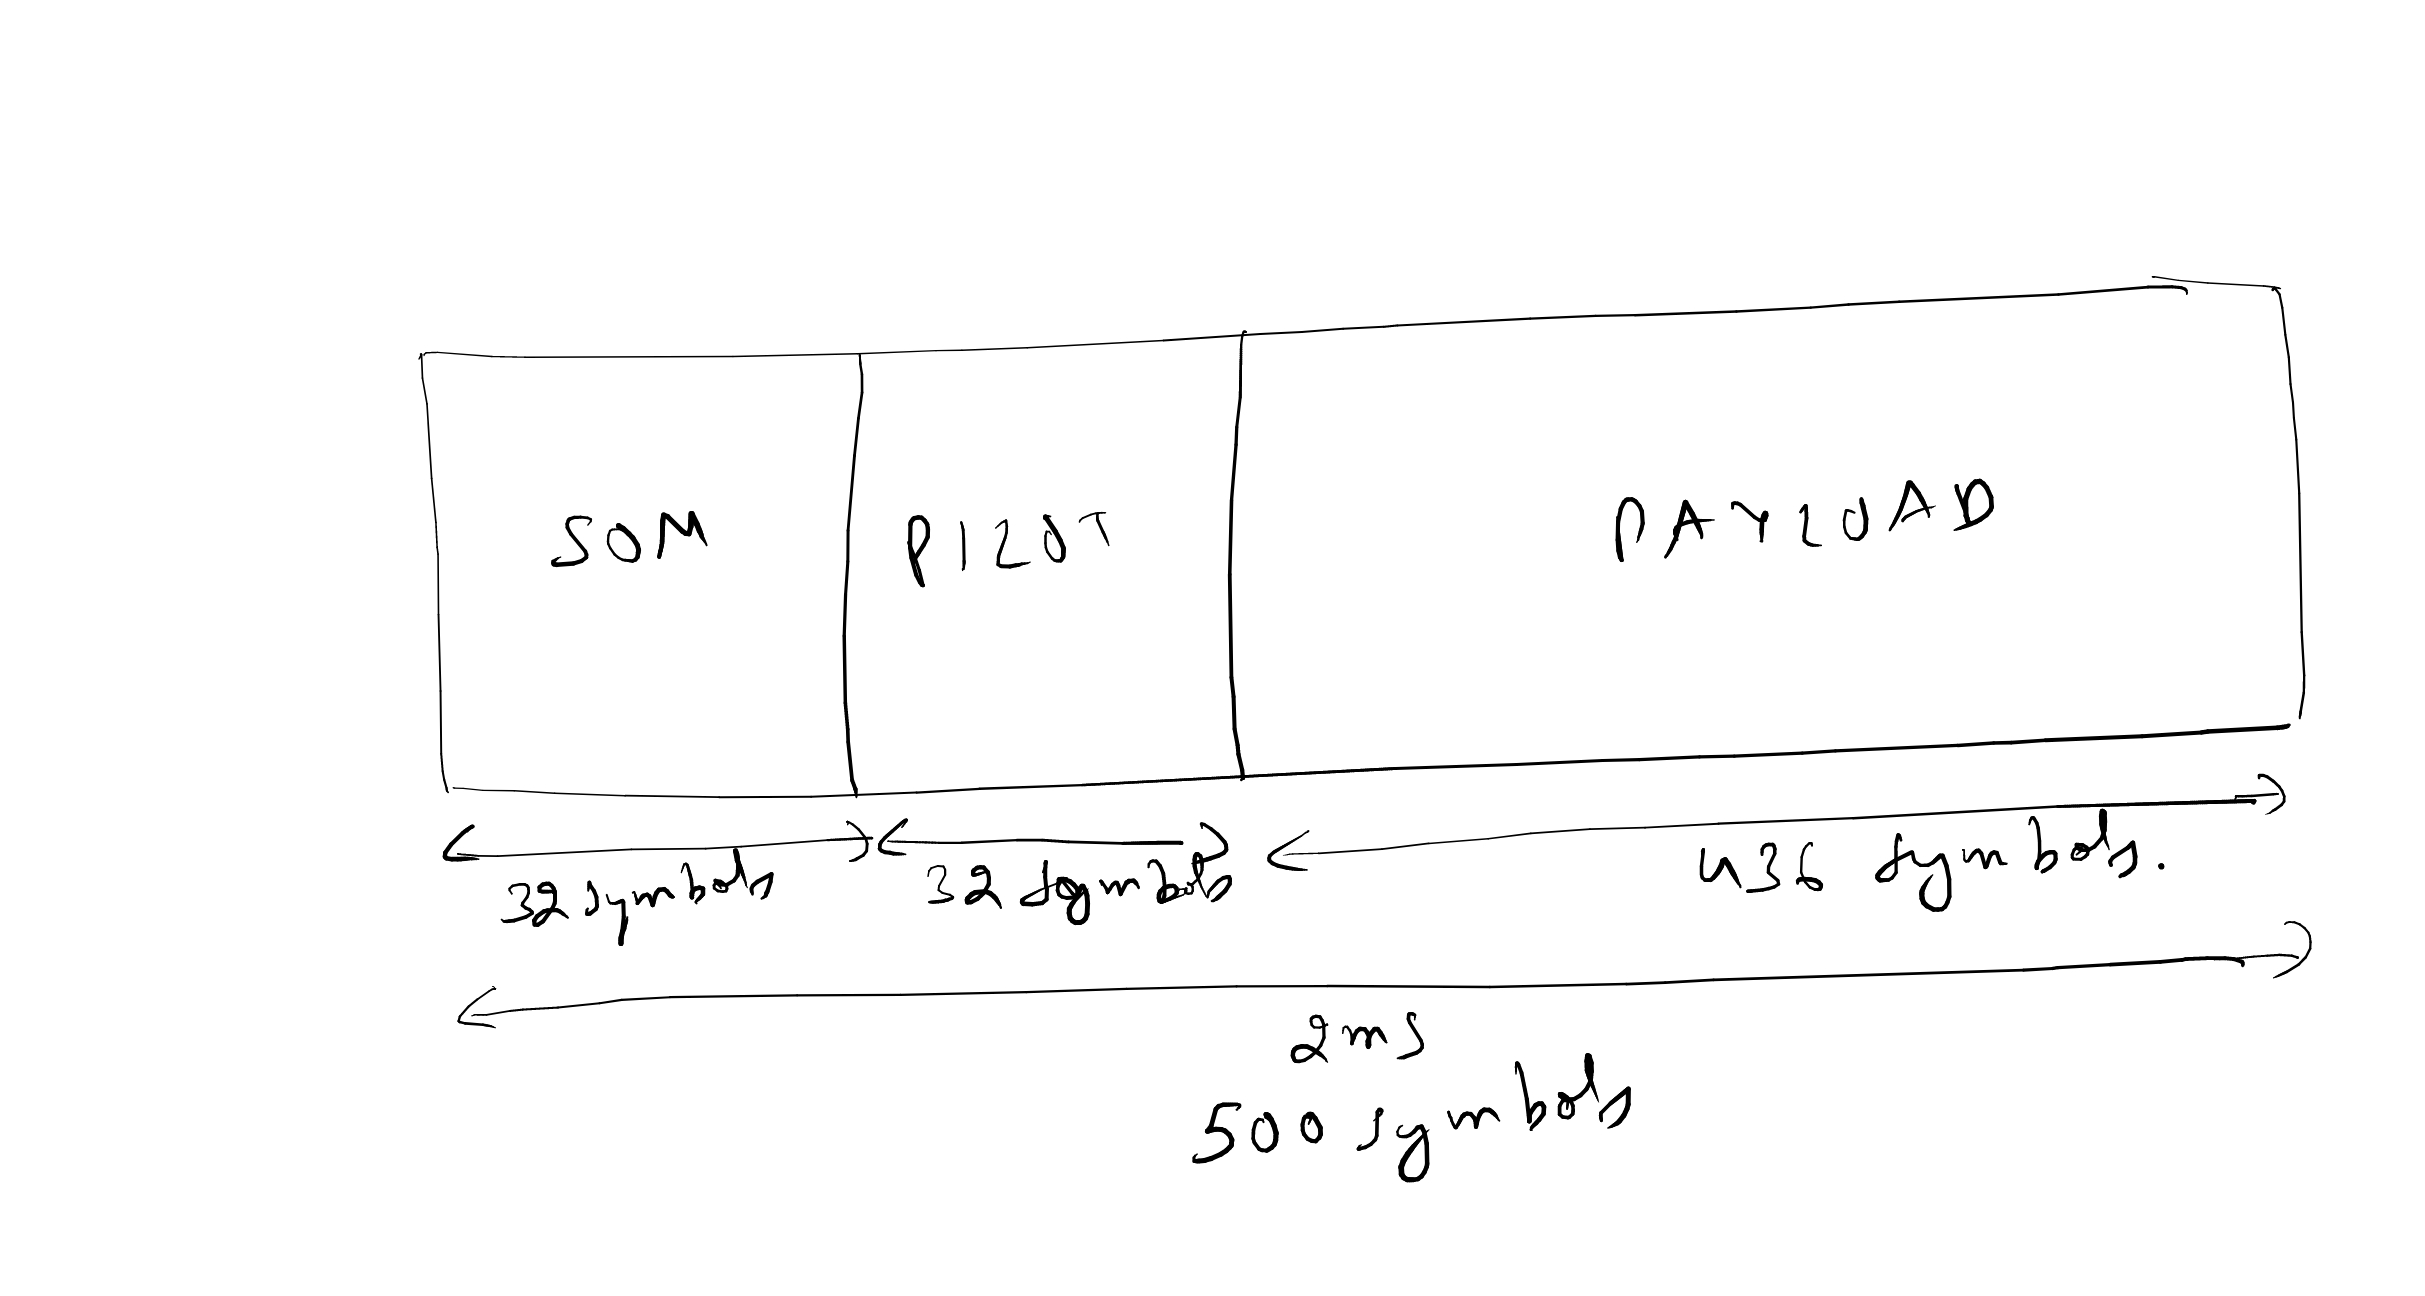 SOM
PILOT
PAYLOAD
32 symbols
32 symbols
436 symbols.
2ms
500 symbols